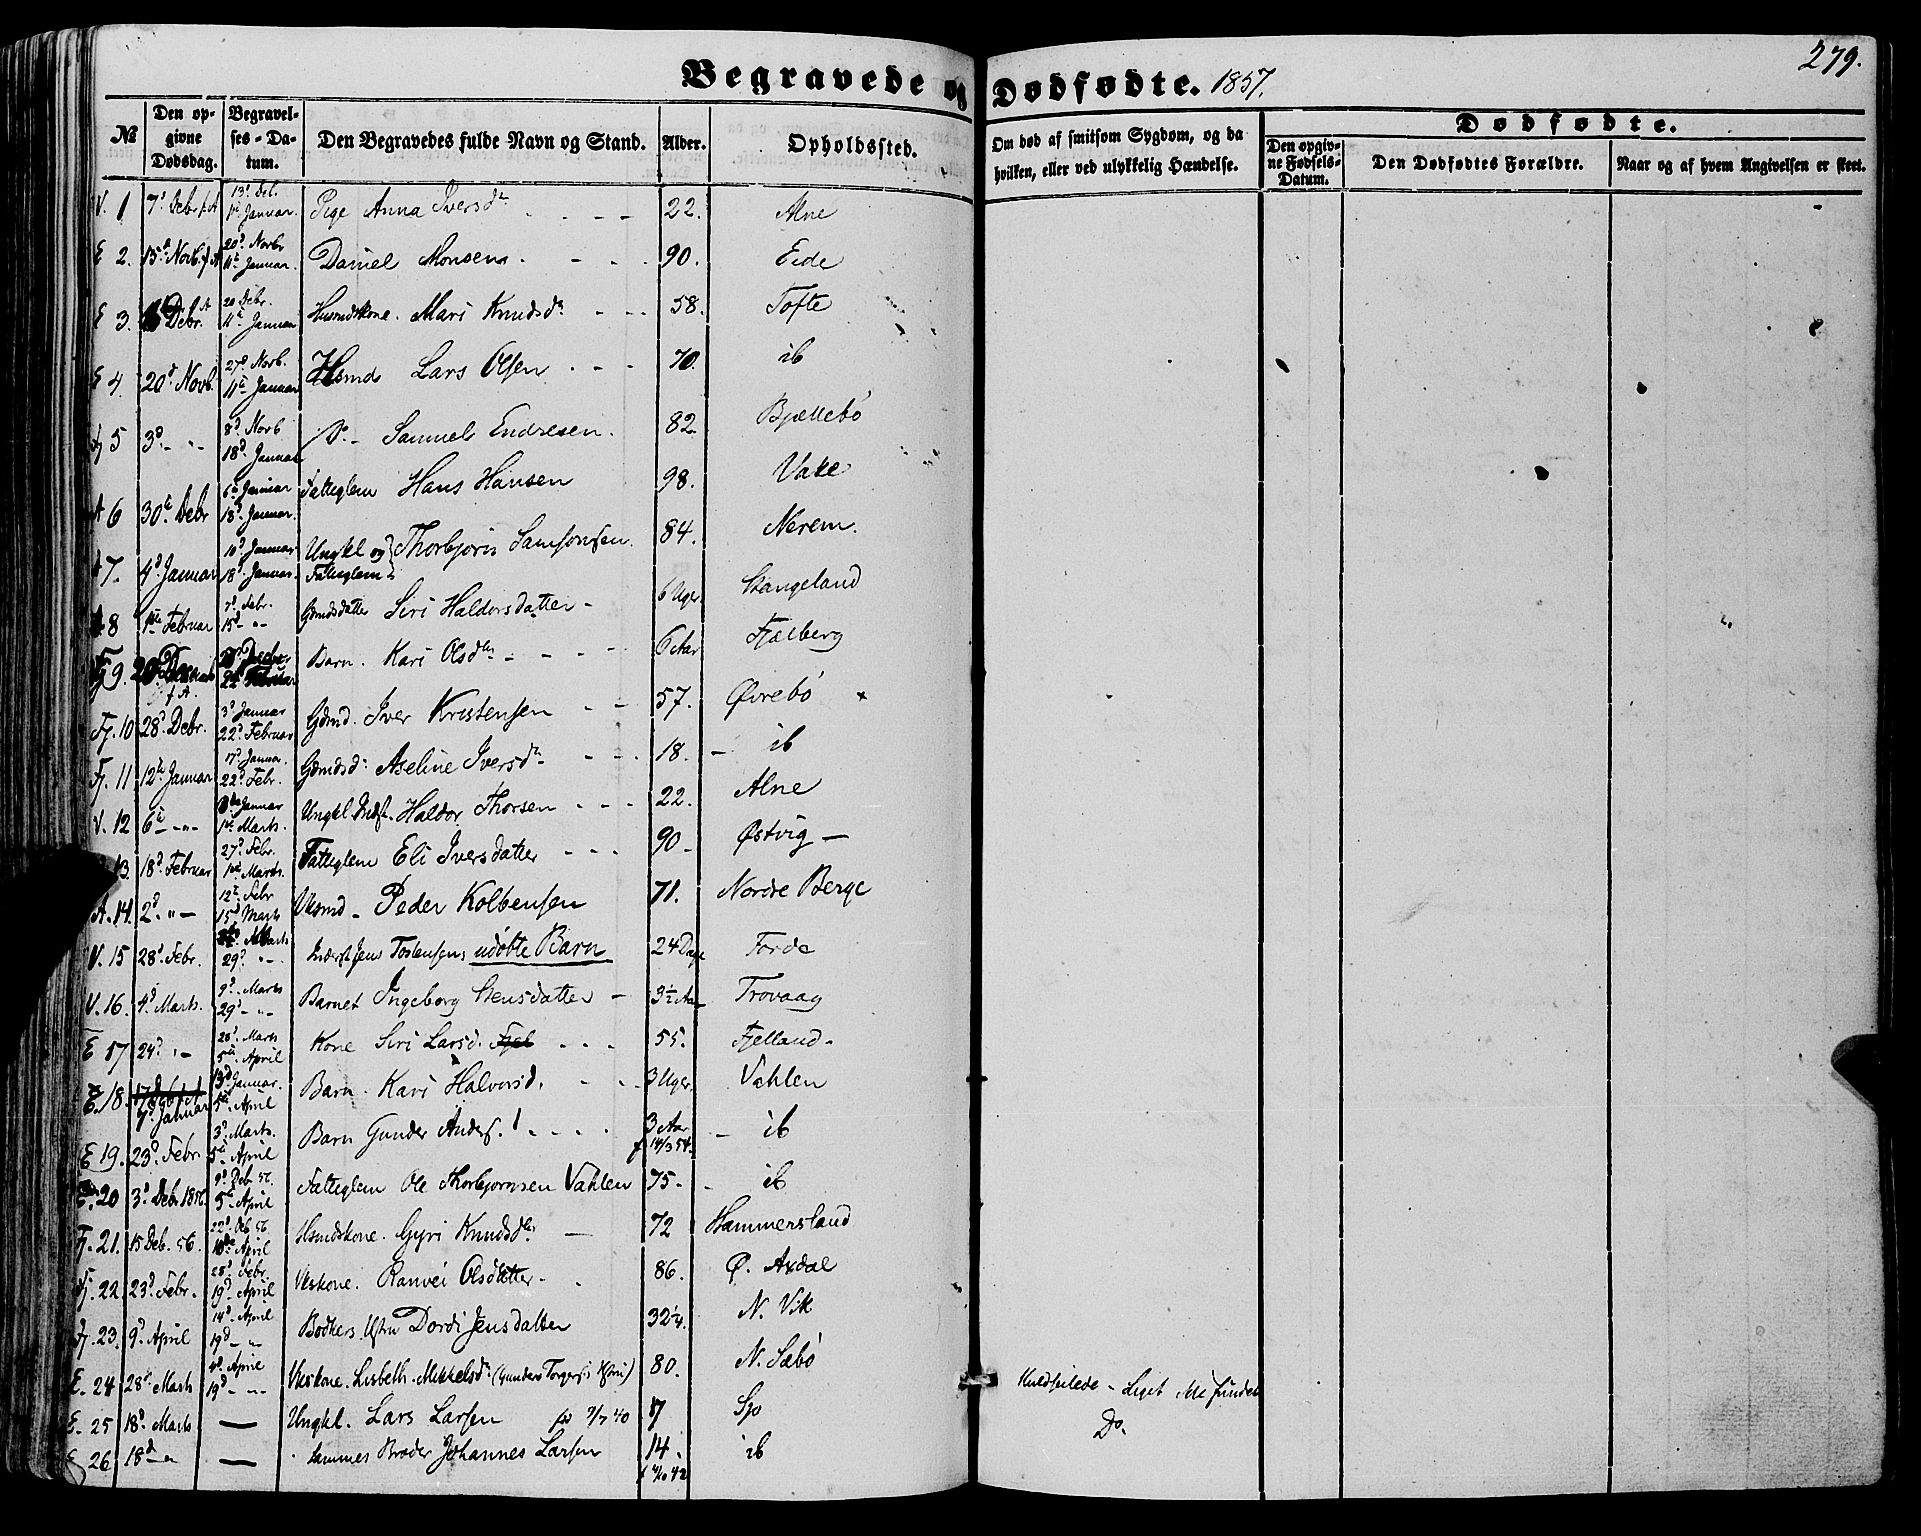 279.
Begravede og Dødfødte. 1857.
No
Den opgivne Dødsdag.
Begravelses-Datum.
Den Begravedes fulde Navn og Stand.
Alder.
Opholdssted.
Om død af smitsom Sygdom, og da hvilken, eller ved ulykkelig Hændelse.
Dødfødte.
Den opgivne Fødsels-Datum.
Den Dødfødtes Forældre.
Naar og af hvem Angivelsen er skeet.
V. 1 7d Debr f. A 13d Deb. 1te Januar. Pige Anna Iversdr 22. Alne
E 2. 15d Novb. f A 20d Novbr 11te Januar. Daniel Monsen 90. Eide
E 3. Debr. A 20 Debr. 11te Januar Husmdskone. Mari Knudsdr 58. Tofte
E 4. 20d Novb. 27d Novb. 11te Januar Hsmd Lars Olsen 70. ib
Fj 5 3d - " 8d Novb 18d Januar Do - Samuel Endresen. 82. Bjællebö
A 6 30te Debr 6te Januar 18d Januar. Fatteglem Hans Hansen 98. Vake
A 7. 4d Januar 10d Januar 18d Januar. Ungkl og Fatteglem Thorbjørn Samsonsen. 84. Nerem.
A 8 1ste Februar 7d Febr. 15d - " - Gmdsdatter Siri Haldorsdatter - 6 Uger Skangeland
Fj 9. f A. Barn. Kari Olsdr 6 Aar Fjælberg
Fj. 10 28d Debr. 3d Januar 22d Februar Gdmd. Iver Kristensen 57. Øvrebö
Fj. 11 12te Januar 17d Januar. 22d Febr. Gdmdsdr Aseline Iversdr 18. ib
V. 12 6te - " - Januar 1ste Marts. Ungkl. Indst. Haldor Thorsen 22. Alne
13. 18d Februar 27d Febr. 1ste Marts. Fatteglem Eli Iversdatter 90 - Østvig
A. 14. 2d " - 12te Febr 15d Marts Vksmd - Peder Kolbensen 71. Nordre Berge
V. 15 28d Febr. Marts 29d " - Inderst Jens Tostensens udöbte Barn 24 Dage Forde
V. 16. 4d Marts. 9d Marts 29d - " - Barnet Ingeborg Jensdatter - 3½ Aar Trovaag
E 17 24d " - 28d Marts 5te April Kone Siri Larsd. 55. Fjelland -
E. 18. 7d Januar 13d Januar. 5te April Barn. Kari Halvorsd. 3 Uger. Vahlen
E 19. 23d Febr 3d Marts. 5te April Barn Gunder Anders. 3 Aar f 14/3 54. ib
E. 20 3d Debr 1856 9d Deb 56. 5te April Fatteglem Ole Thorbjørnsen Vahlen 75 - ib
Fj. 21. 15 Deb. 56. 22d Deb 56 April Hsmdskone. Gyri Knudsdr 72 Hammersland
Fj. 22 23d Febr. 28d Febr. 19d April Vkskone. Ranvei Olsdatter - 86. Ø. Axdal
Fj. 23. 9d April 14d April 19d - " Bødkers Hstru Dordi Jensdatter 32¼. N. Vik
E. 24 28de Marts 4d April 19d - " - Vkskone. Lisbeth Mikkelsdr (Gunders Torgers.s Hstru) 80. N. Sæbö
E. 25 18d Marts — Ungkl. Lars Larsen 7/7 40 17 Sjo Kuldseilede - Liget ikke funden
E 26 18d - " — Sammes Broder Johannes Larsen 14. ib Do.